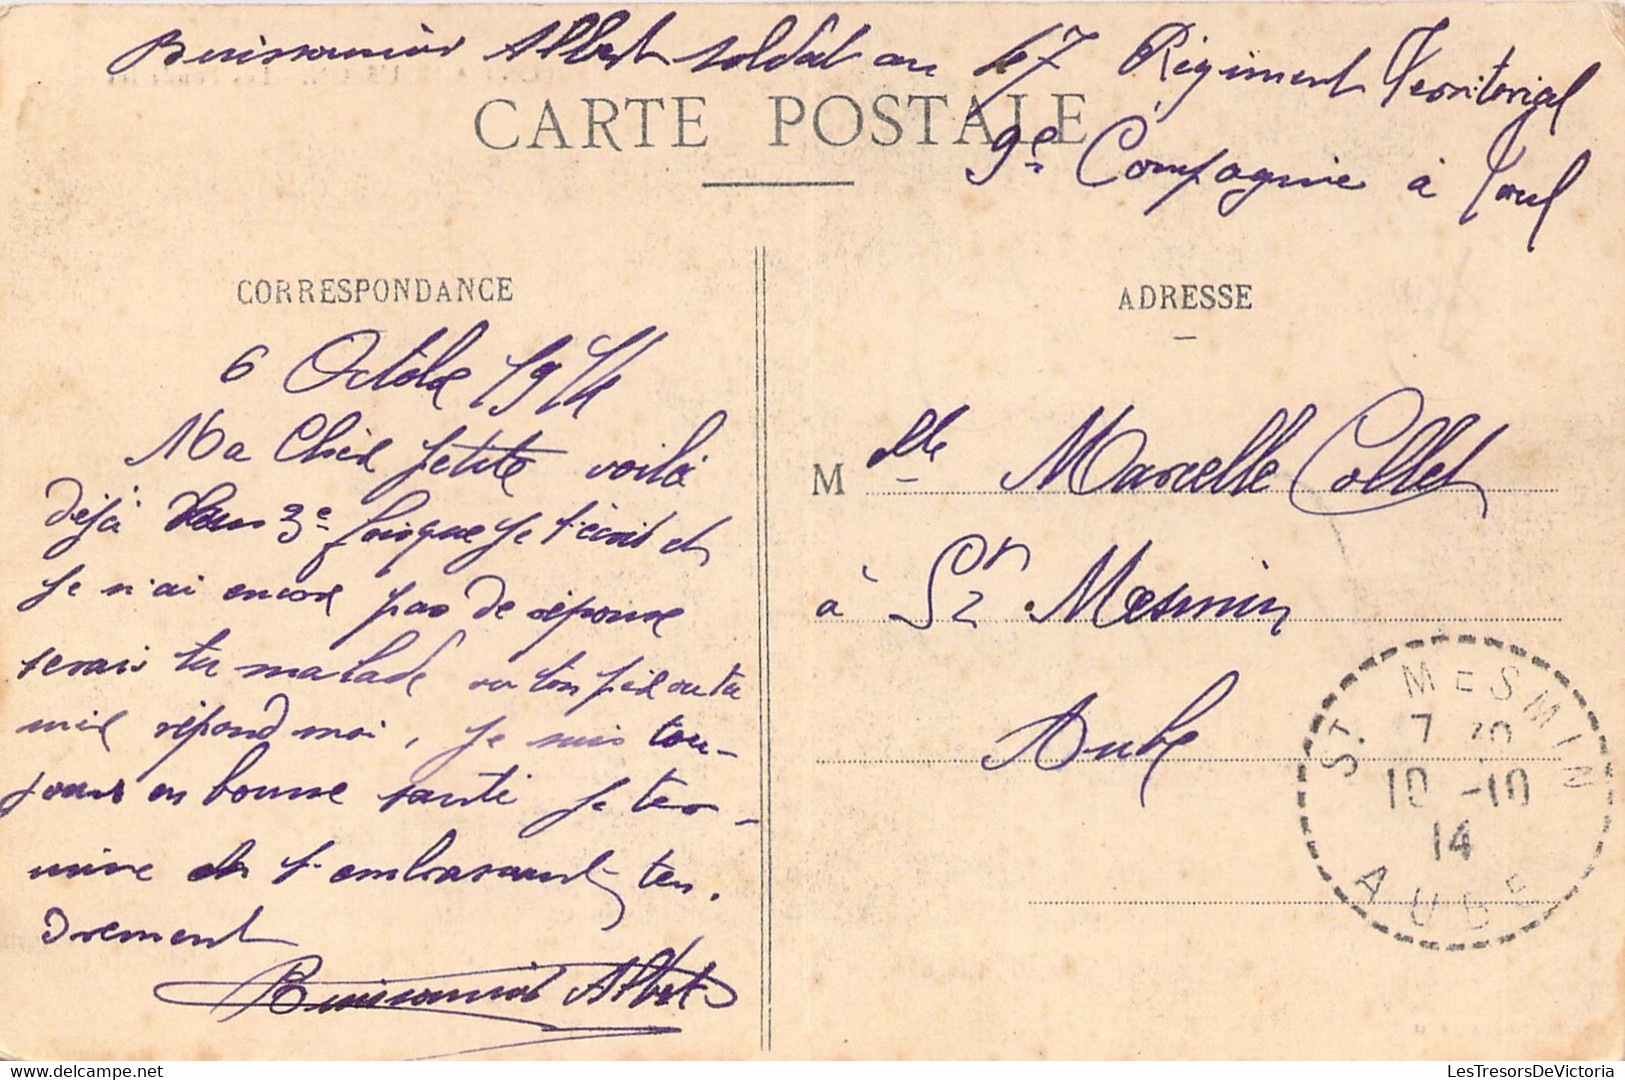 Buissonnier Albert soldat au 47 Régiment Territorial
9e Compagnie à Toul
CARTE POSTALE
CORRESPONDANCE
6 Octobre 1914
Ma Chère petite voilà
déjà 3e fois que je t'écrit et
je n'ai encore pas de réponse
serais tu malade ou ton père ou ta
mère répond moi, je suis tou-
jours en bonne santé je ter-
mine en t'embrassant ten-
drement
Buissonnier Albert
ADRESSE
Mlle Marcelle Collet
à St Mesmin
Aube
ST. MESMIN
7 30
10 -10
14
AUBE
LesTresorsDeVictoria